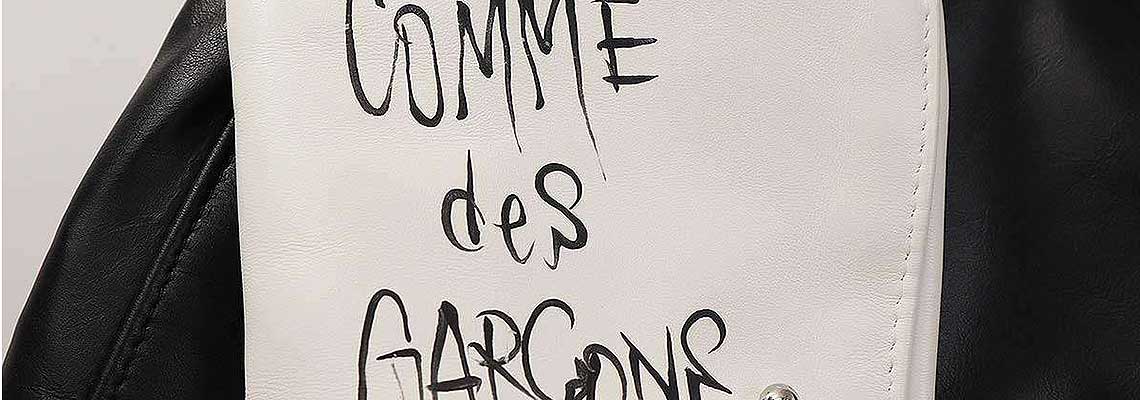 COMME
des
GARCONS